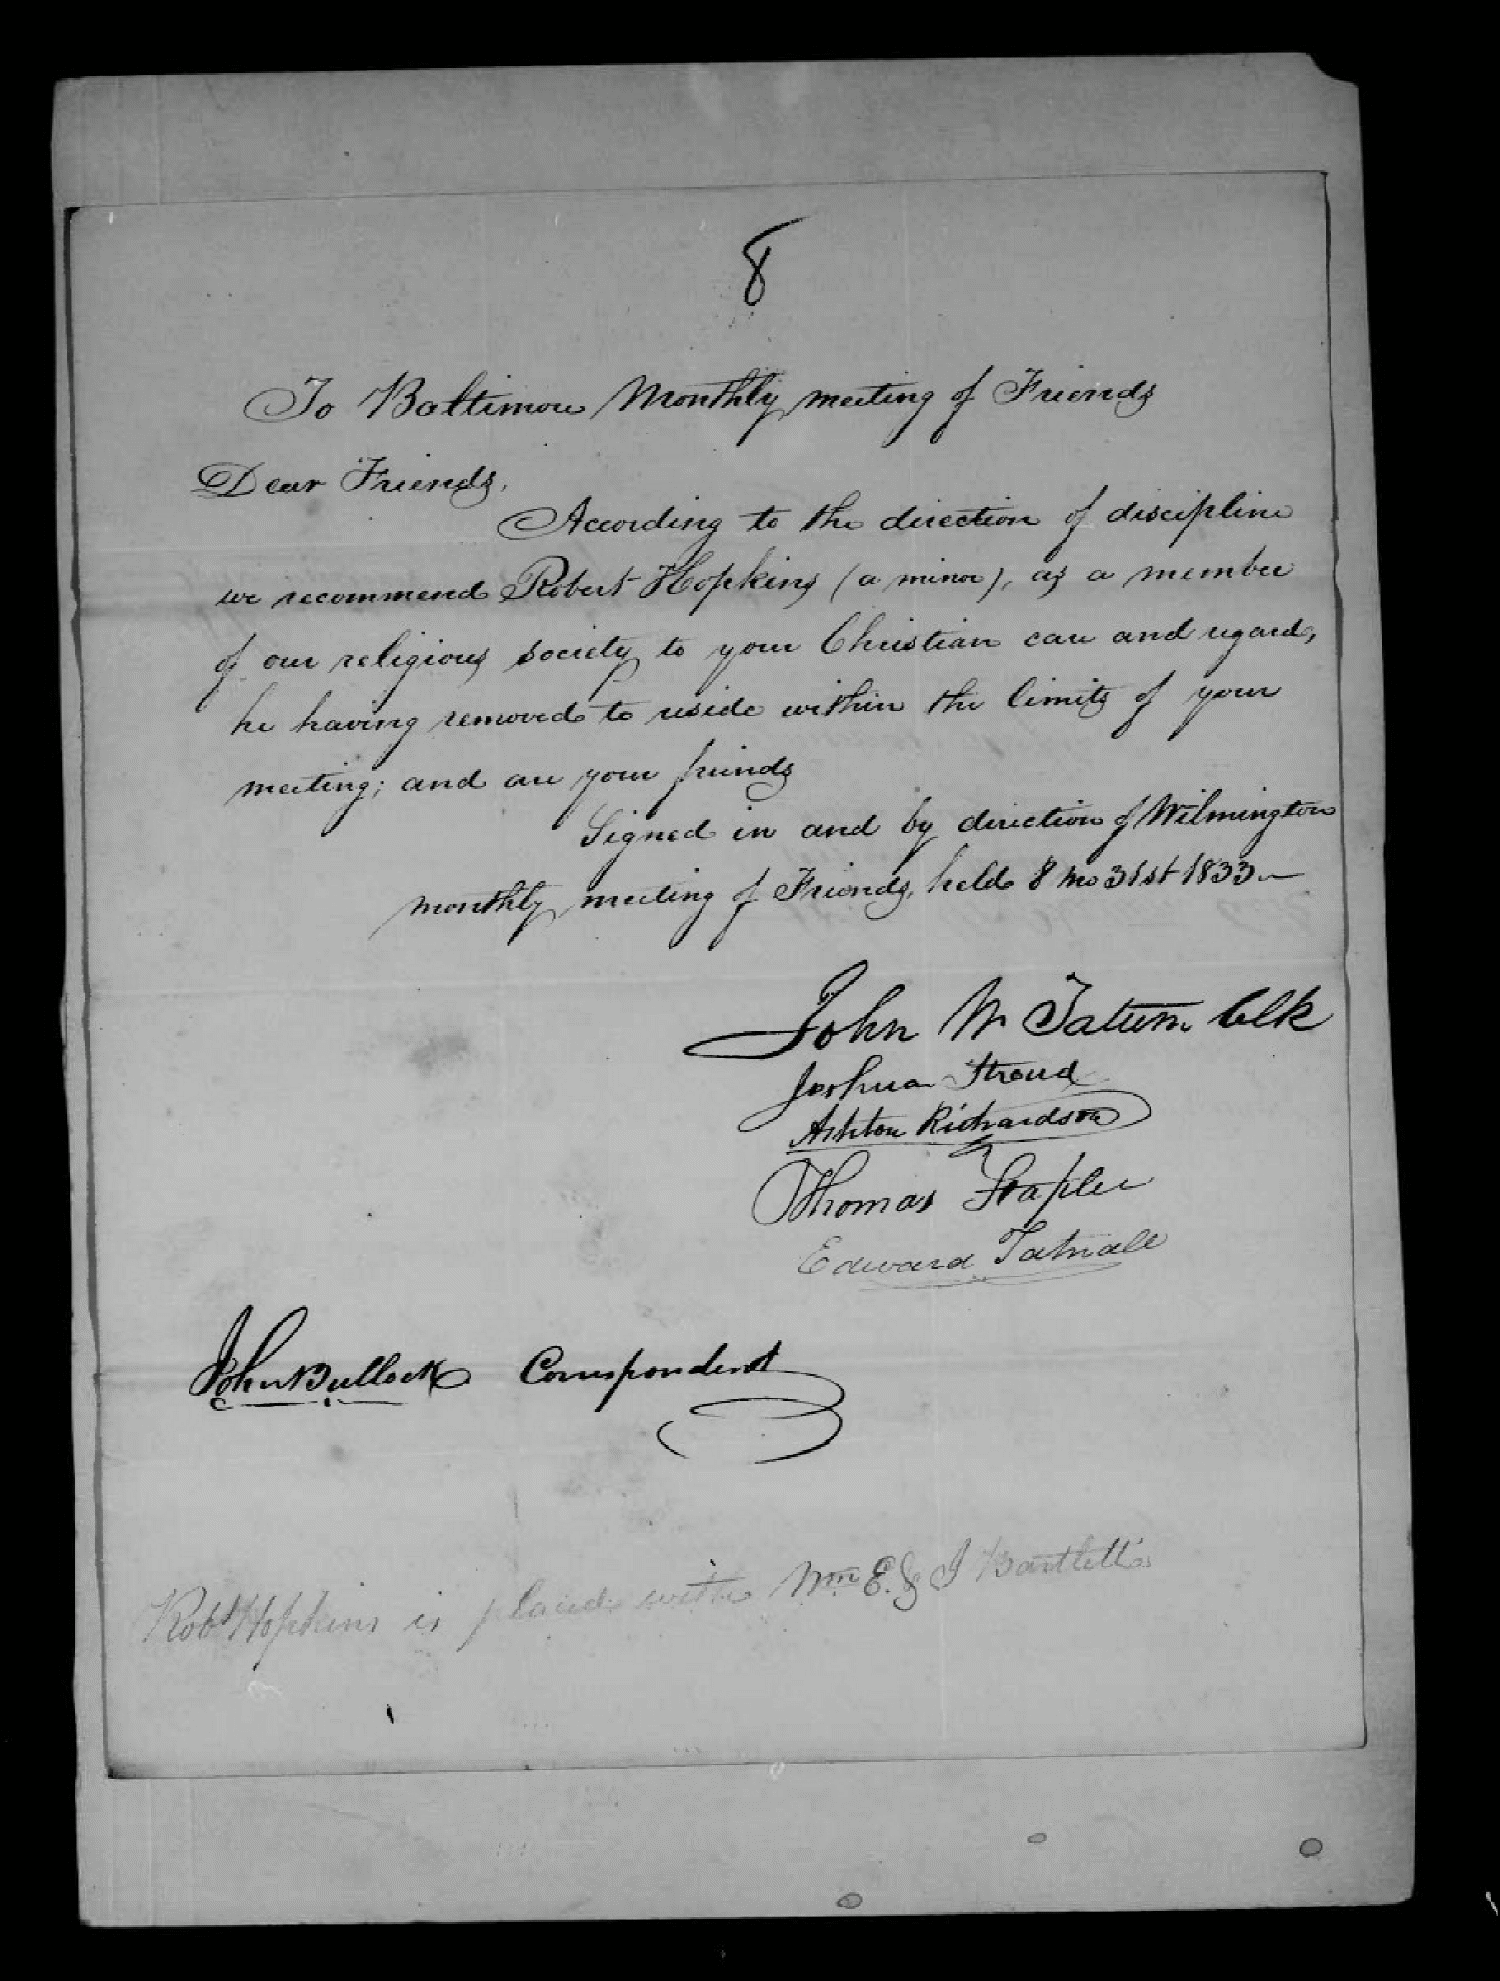 8
To Baltimore Monthly meeting of Friends
Dear Friends,
According to the direction of discipline
we recommend Robert Hopkins (a minor), as a member
of our religious society to your Christian care and regard,
he having removed to reside within the limits of your
meeting; and are your friends
Signed in and by direction of Wilmington
monthly meeting of Friends, held 8 mo 31st 1833.—
John W Tatum Clk
Joshua Stroud
Ashton Richardson
Thomas Stapler
Edward Tatnall
John Bullock Correspondent
Robt Hopkins is placed with Wm E. & J Bartlett's